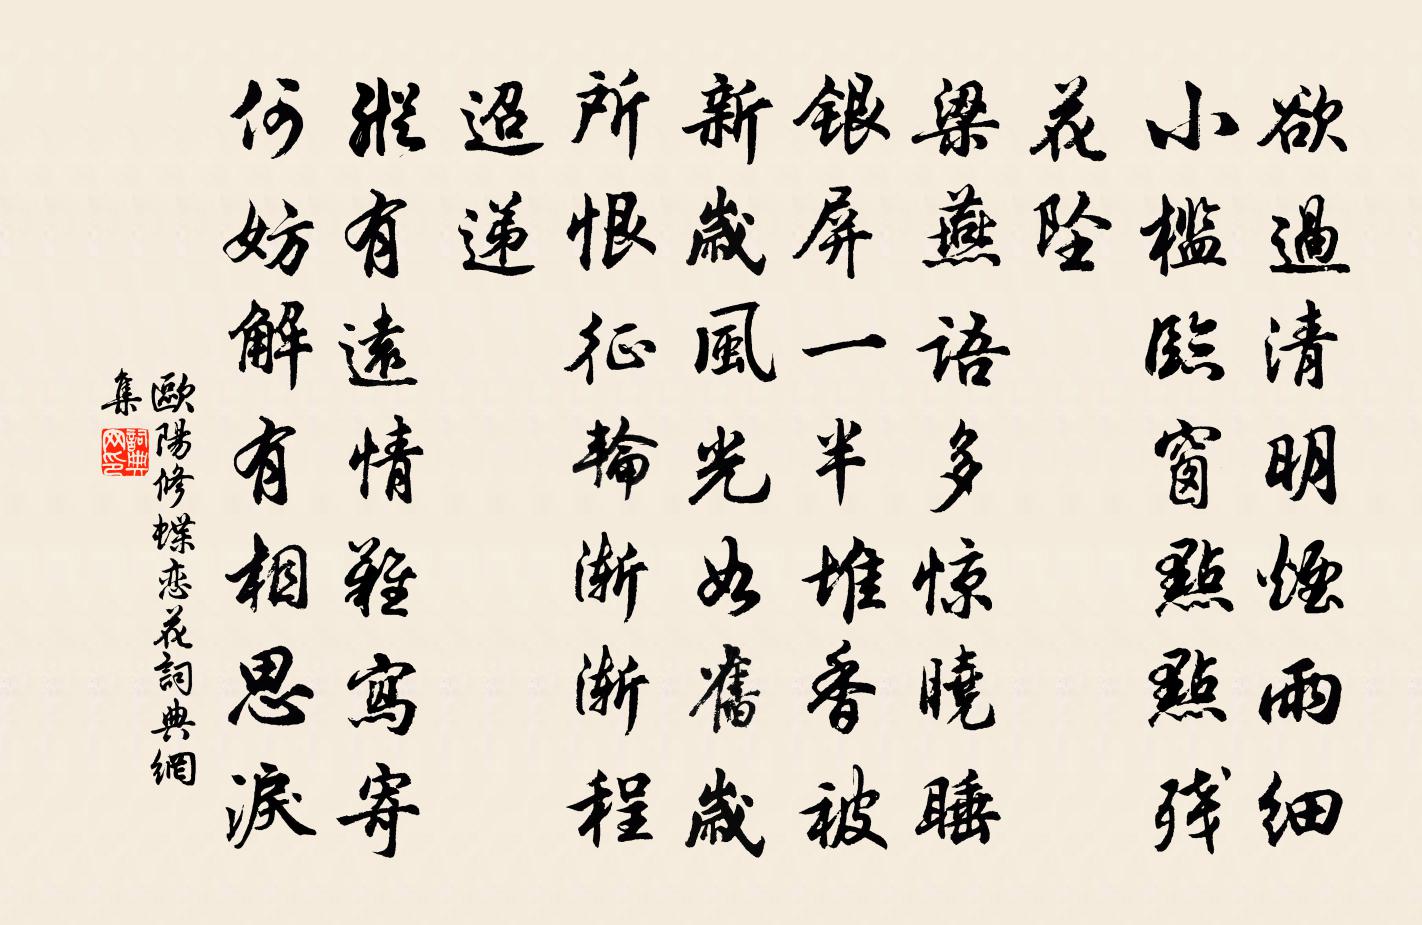 欲過清明煙雨細
小檻臨窗點點殘
花墜
梁燕語多惊曉睡
銀屏一半堆香被
新歲風光如舊歲
所恨征輪漸漸程
迢遞
縱有遠情難寫寄
何妨解有相思淚
歐陽修蝶恋花詞典網
集
詞典網印